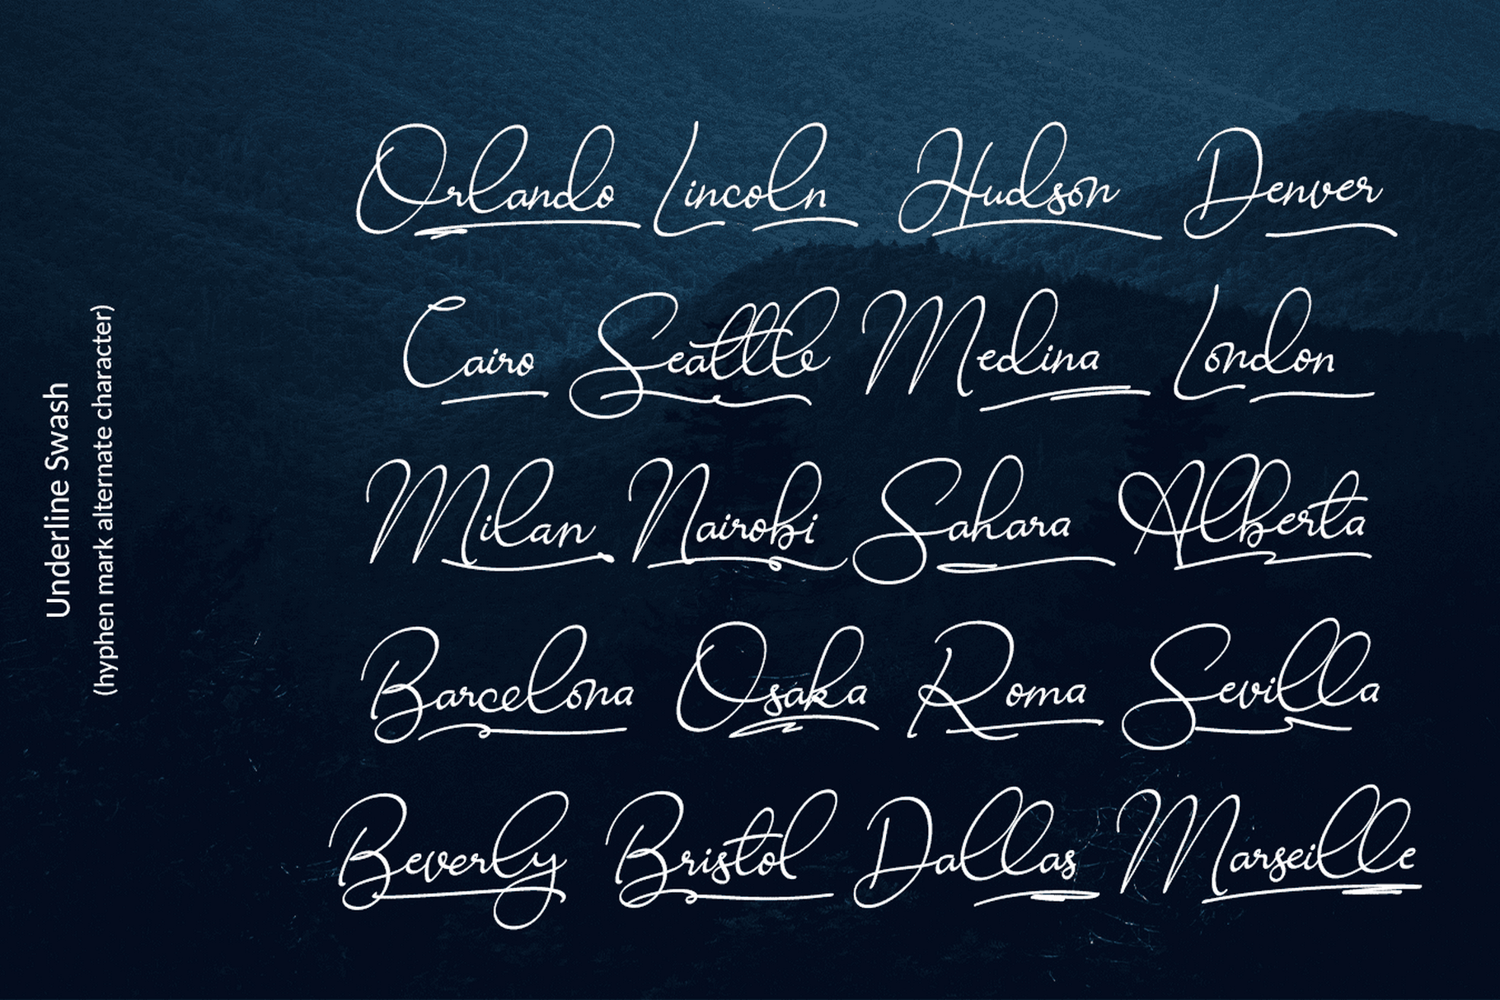 Underline Swash
(hyphen mark alternate character)
Orlando Lincoln Hudson Denver
Cairo Seattle Medina London
Milan Nairobi Sahara Alberta
Barcelona Osaka Roma Sevilla
Beverly Bristol Dallas Marseille